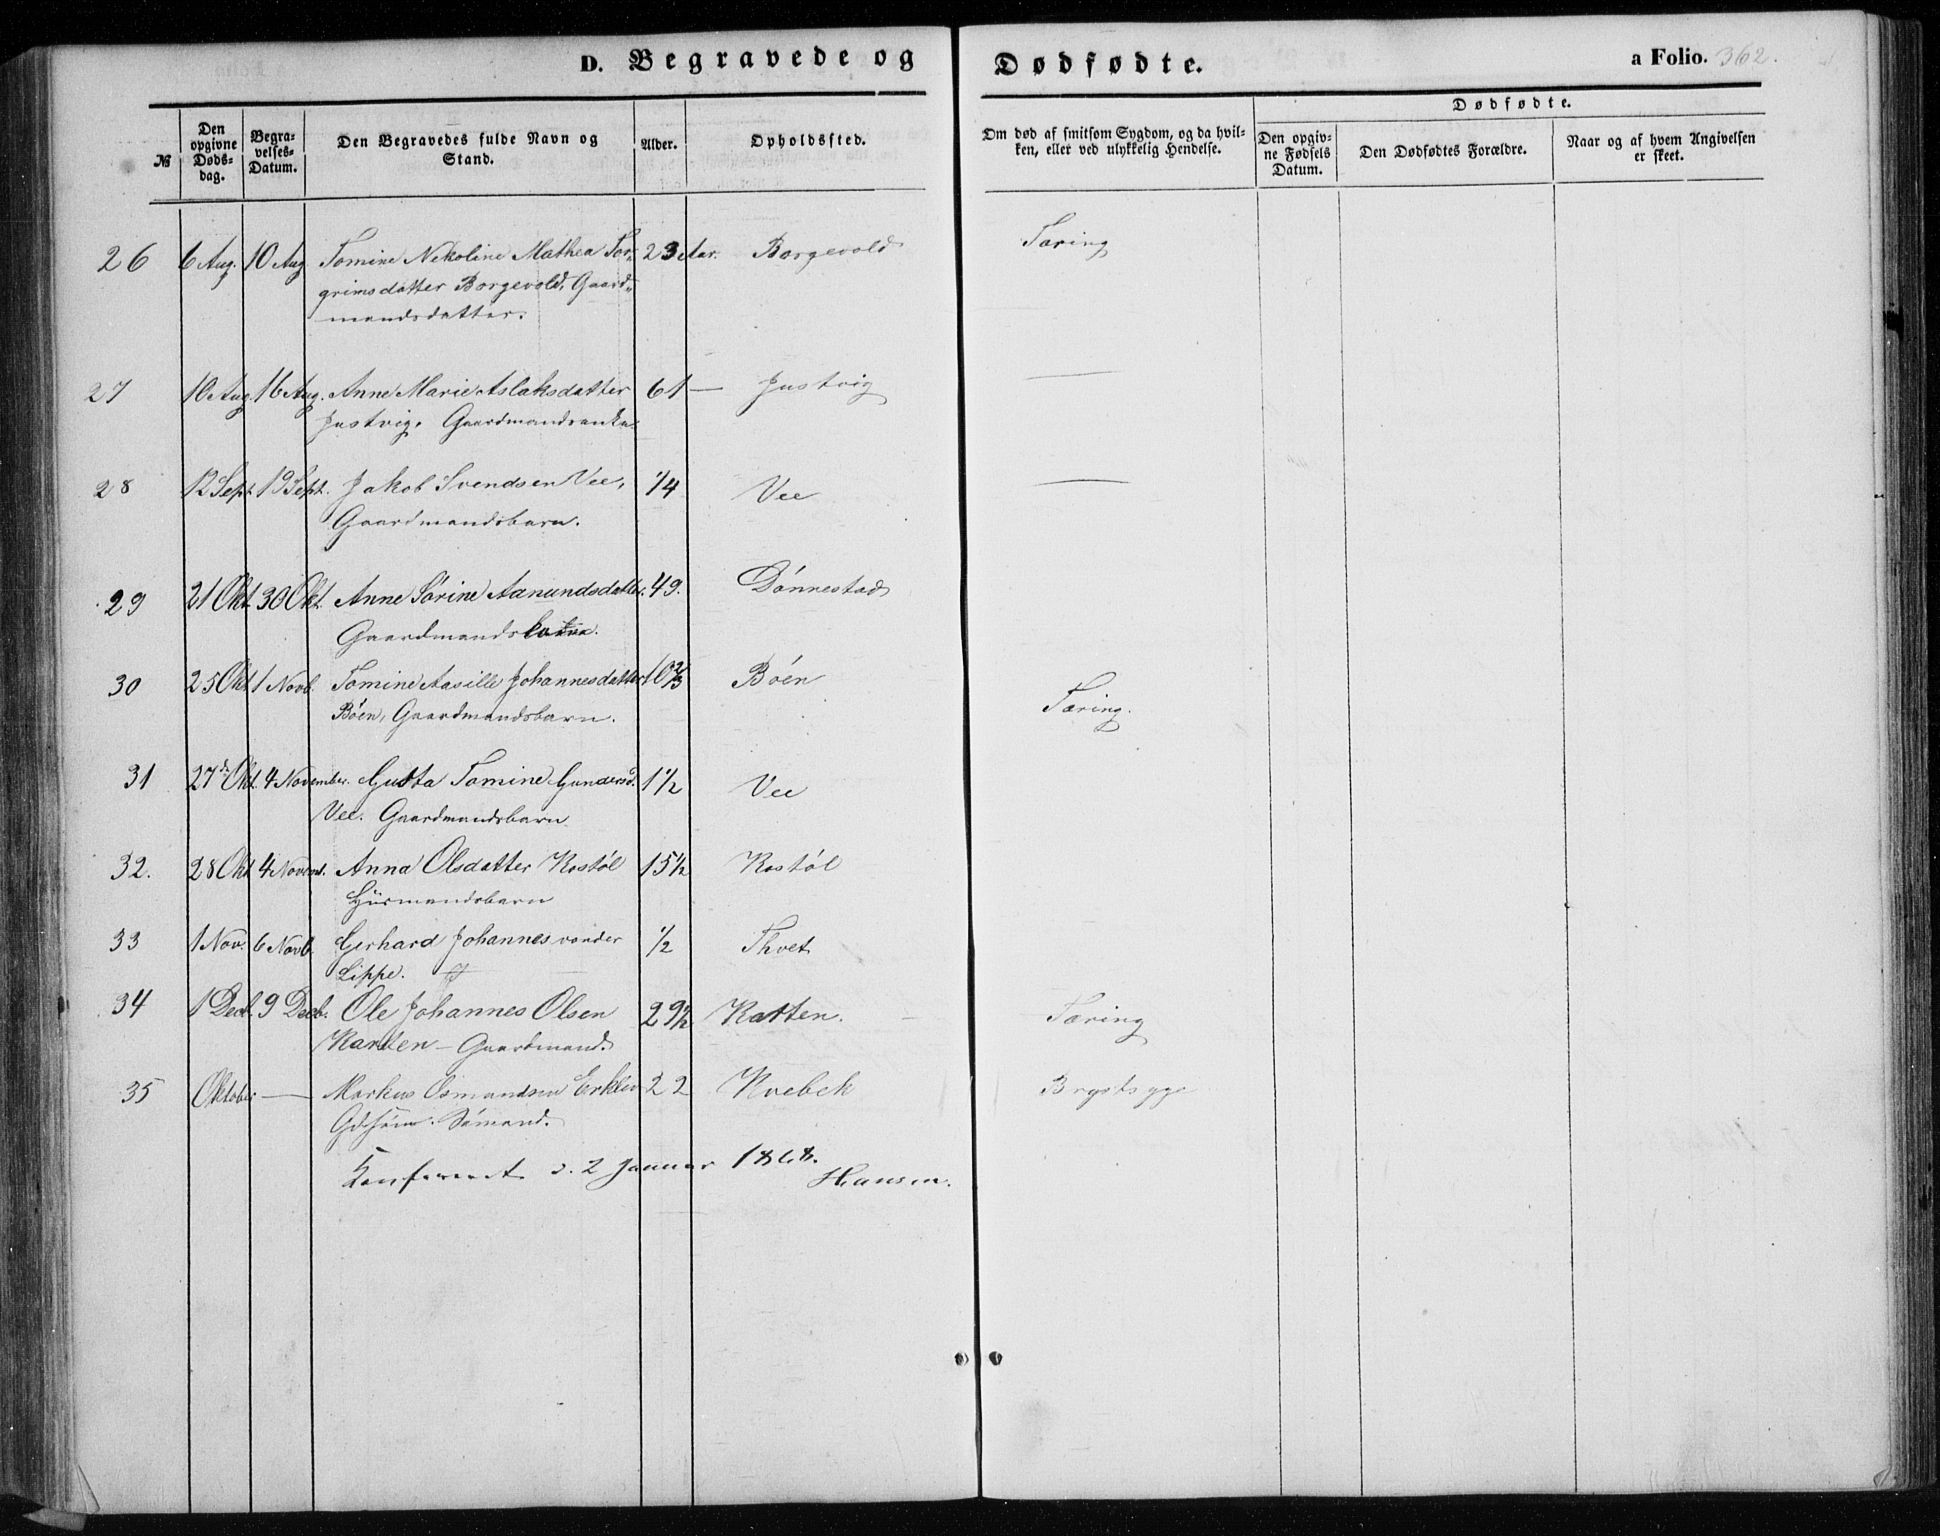 D. Begravede og Dødfødte. a Folio. 362.
№ Den opgivne Døds-dag. Begra-velses-Datum. Den Begravedes fulde Navn og Stand. Alder. Opholdssted. Om død af smitsom Sygdom, og da hvil-ken, eller ved ulykkelig Hendelse. Dødfødte. Den opgiv-ne Fødsels Datum. Den Dødfødtes Forældre. Naar og af hvem Angivelsen er skeet.
26 6 Aug. 10 Aug Tomine Nikoline Mathea Tor- 23 Aar. Borgevold Tæring
grimsdatter Borgevold, Gaard-
mandsdatter.
27 10 Aug 16 Aug. Anne Marie Aslaksdatter 61 — Justvig —
Justvig. Gaardmandsenke.
28 12 Sept 19 Sept. Jakob Svendsen Vee, 1/4 Vee —
Gaardmandsbarn.
29 21 Okt. 30 Okt. Anne Sørine Aanundsdatter. 49. Dønnestad
Gaardmands
30 25 Okt 1 Novb. Tomine Aasille Johannesdatter 10 2/3 Bóen Tæring.
Bóen, Gaardmandsbarn.
31 27 Okt. 4 November. Gusta Tomine Gundersd. 1 1/2 Vee
Vee. Gaardmandsbarn
32. 28 Okt 4 Novemb. Anna Olsdatter Rostøl 15 1/2 Rostøl
Húsmandsbarn
33 1 Nov. 6 Novb. Gerhard Johannes vonder 1/2 Thvet
Lippe.
34 1 Decb. 9 Decb. Ole Johannes Olsen 29 1/2 Katten. Tæring
Gaardmand.
35 Oktober — Markus Osmundsen Erkleiv 22 Kvebek Brystsyge
Sømand.
Konfereret d. 2 Januar 1868.
Hansen.